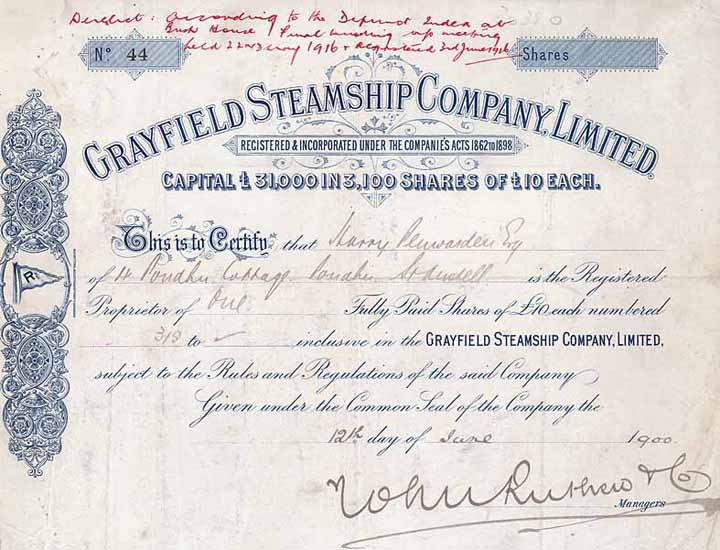 Derelict: according to the Defunct Index at
Bush House Final winding up meeting
held 22nd May 1916 & Registered 3rd June 1916
No. 44
Shares
GRAYFIELD STEAMSHIP COMPANY, LIMITED.
REGISTERED & INCORPORATED UNDER THE COMPANIE'S ACTS 1862 TO 1898
CAPITAL £31,000 IN 3,100 SHARES OF £10 EACH.
This is to Certify that Harry Penwarden Esq
of Cottage is the Registered
Proprietor of One Fully Paid Shares of £10 each numbered
to inclusive in the GRAYFIELD STEAMSHIP COMPANY, LIMITED,
subject to the Rules and Regulations of the said Company
Given under the Common Seal of the Company the
12th day of June 1900.
R
Managers